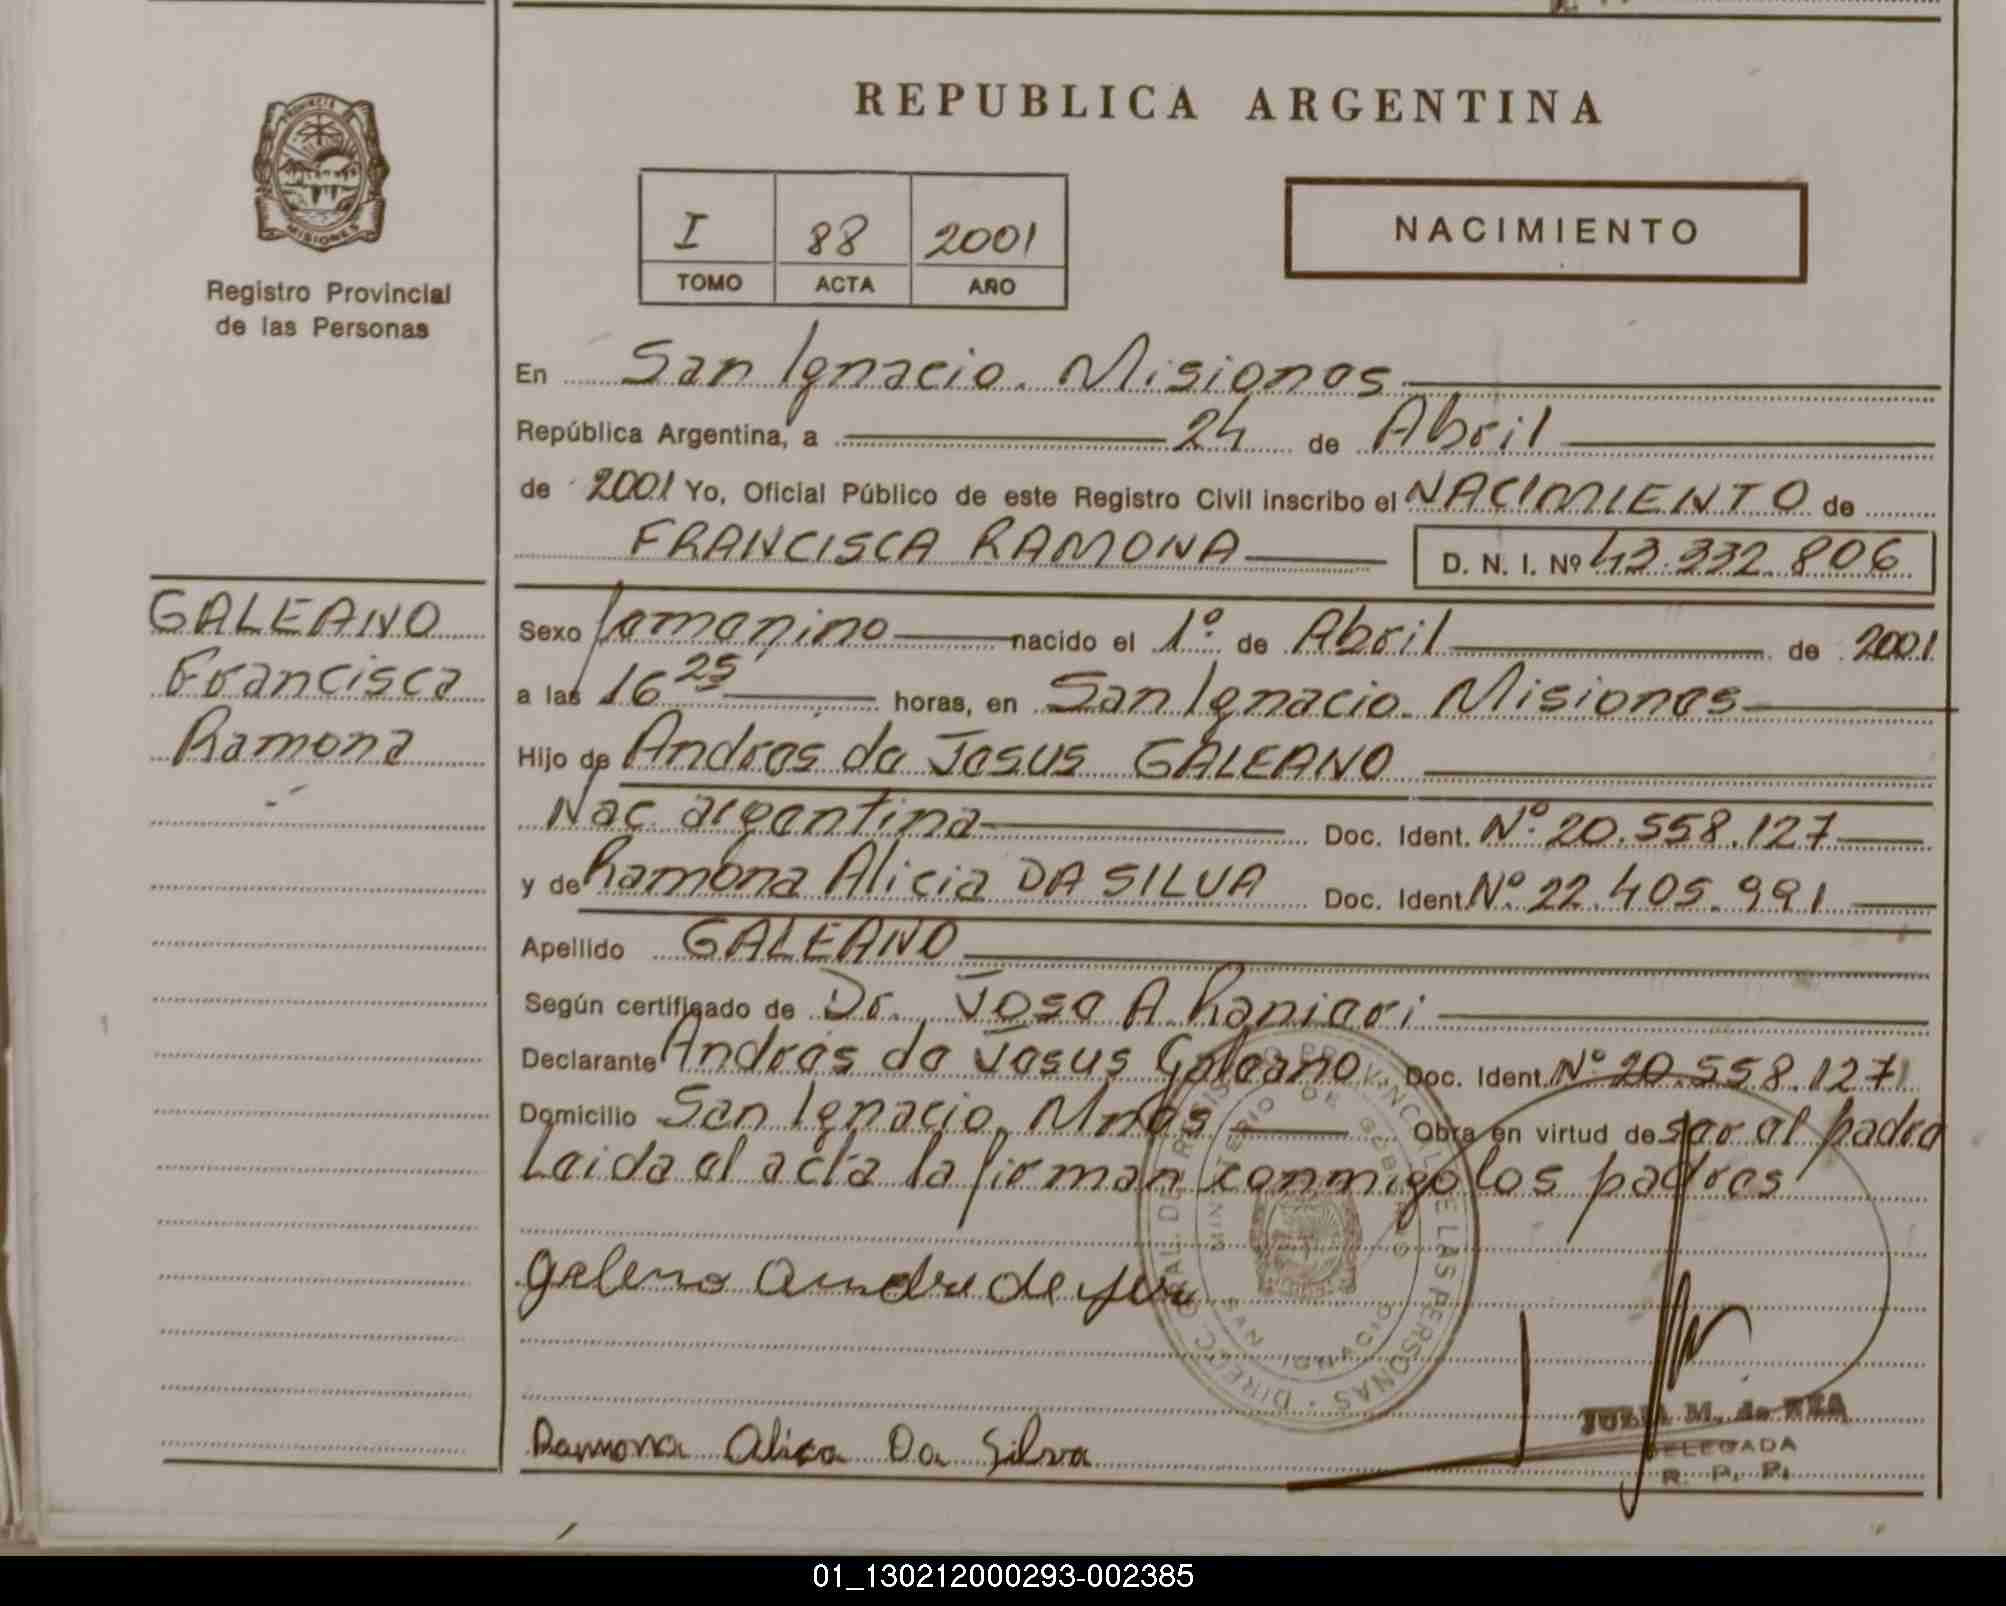 REPUBLICA ARGENTINA
PROVINCIA
MISIONES
Registro Provincial
de las Personas
I 88 2001
TOMO ACTA AÑO
NACIMIENTO
En San Ignacio. Misiones
República Argentina, a 24 de Abril
de 2001 Yo, Oficial Público de este Registro Civil inscribo el NACIMIENTO de
FRANCISCA RAMONA D. N. I. Nº 43.332.806
GALEANO
Francisca
Ramona
Sexo femenino nacido el 1º de Abril de 2001
a las 16 25 horas, en San Ignacio. Misiones
Hijo de Andres de Jesus GALEANO
Nac. argentina Doc. Ident. Nº 20.558.127
y de Ramona Alicia DA SILVA Doc. Ident. Nº 22.405.991
Apellido GALEANO
Según certificado de Dr. Jose A. Ranieri
Declarante Andres de Jesus Galeano Doc. Ident. Nº 20.558.127
Domicilio San Ignacio, Mnes Obra en virtud de ser el padre
Leida el acta la firman conmigo los padres
DIRECC. GRAL. DEL REGISTRO PROVINCIAL DE LAS PERSONAS
MINISTERIO DE GOBIERNO
SAN IGNACIO
galeno Andre de
Ramona Alica Da Silva
JULIA M. de
DELEGADA
R. P. P.
01_130212000293-002385